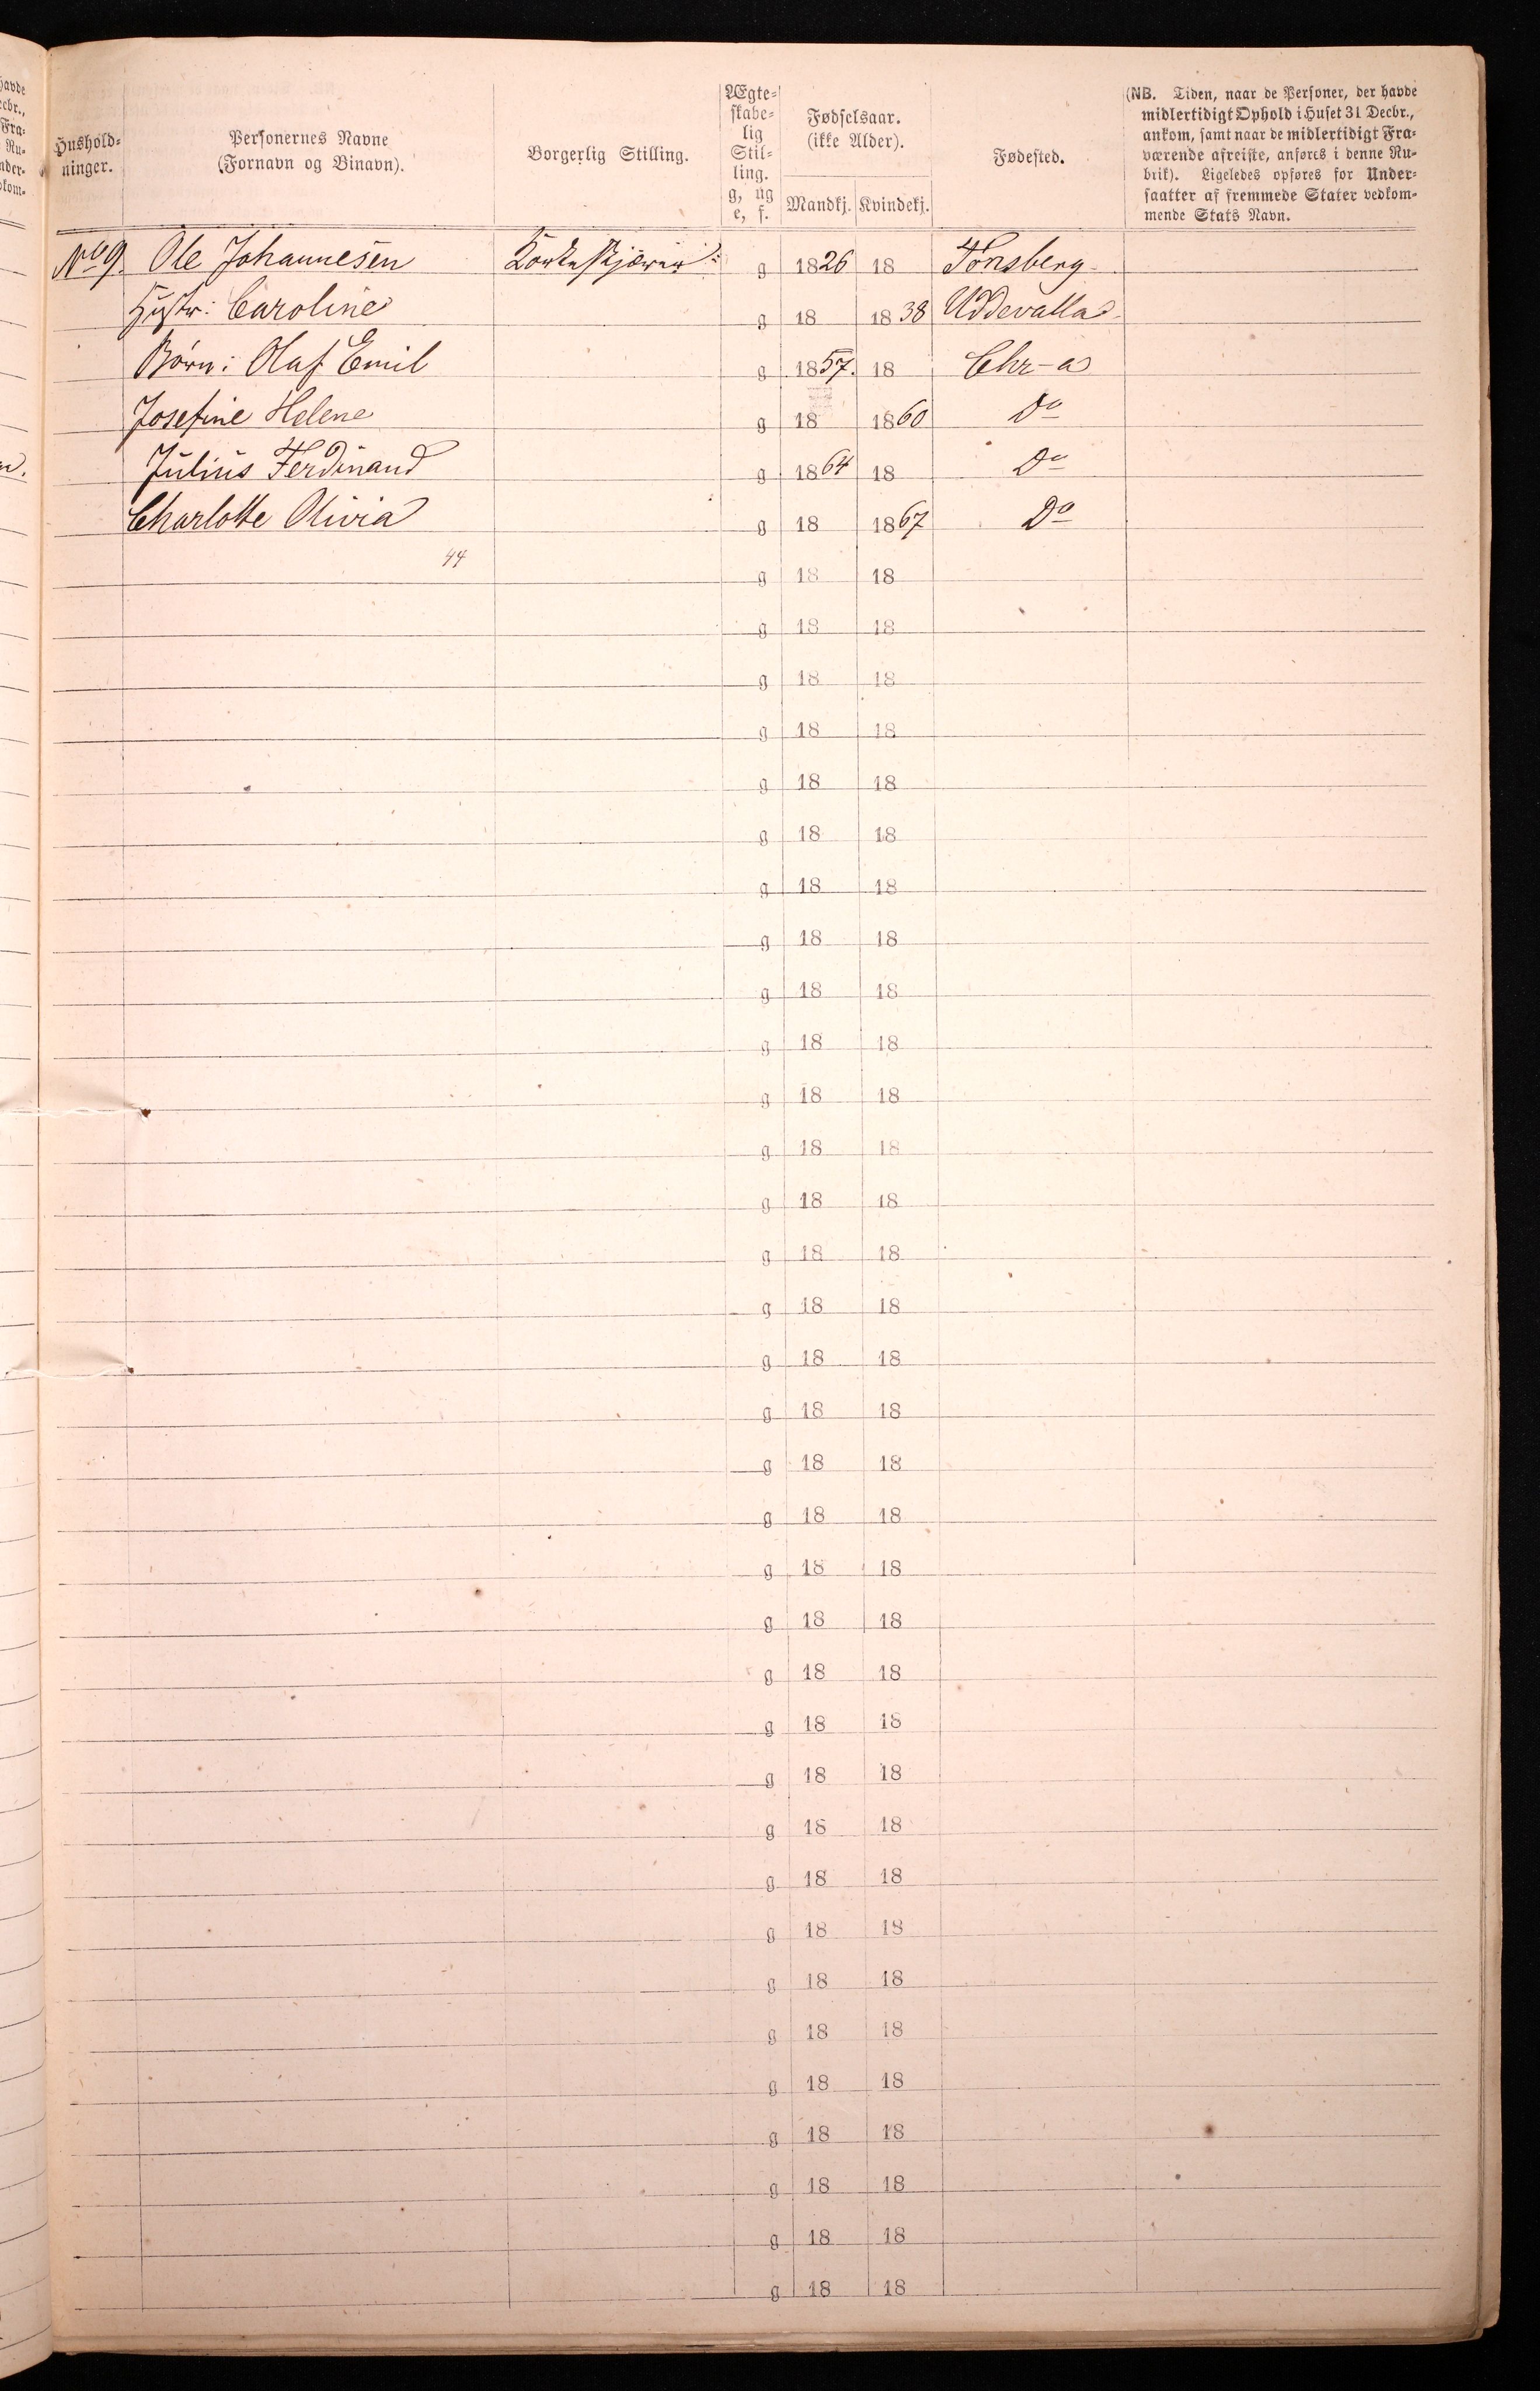 Hushold-
ninger.
Personernes Navne
(Fornavn og Binavn).
Borgerlig Stilling.
Ægte-
skabe-
lig
Stil-
ling.
g, ug
e, f.
Fødselsaar.
(ikke Alder).
Mandkj. Kvindekj.
Fødested.
(NB. Tiden, naar de Personer, der havde
midlertidigt Ophold i Huset 31 Decbr.,
ankom, samt naar de midlertidigt Fra-
værende afreiste, anføres i denne Ru-
brik). Ligeledes opføres for Under-
saatter af fremmede Stater vedkom-
mende Stats Navn.
No 9. Ole Johannesen Korkeskjærer g 1826 18 Tønsberg
Hustr: Caroline g 18 1838 Uddevalla
Børn: Olaf Emil g 1857. 18 Chr-a
Josefine Helene g 18 1860 Do
Julius Ferdinand g 1864 18 Do
Charlotte Olivia g 18 1867 Do
44
g 18 18
g 18 18
g 18 18
g 18 18
g 18 18
g 18 18
g 18 18
g 18 18
g 18 18
g 18 18
g 18 18
g 18 18
g 18 18
g 18 18
g 18 18
g 18 18
g 18 18
g 18 18
g 18 18
g 18 18
g 18 18
g 18 18
g 18 18
g 18 18
g 18 18
g 18 18
g 18 18
g 18 18
g 18 18
g 18 18
g 18 18
g 18 18
g 18 18
g 18 18